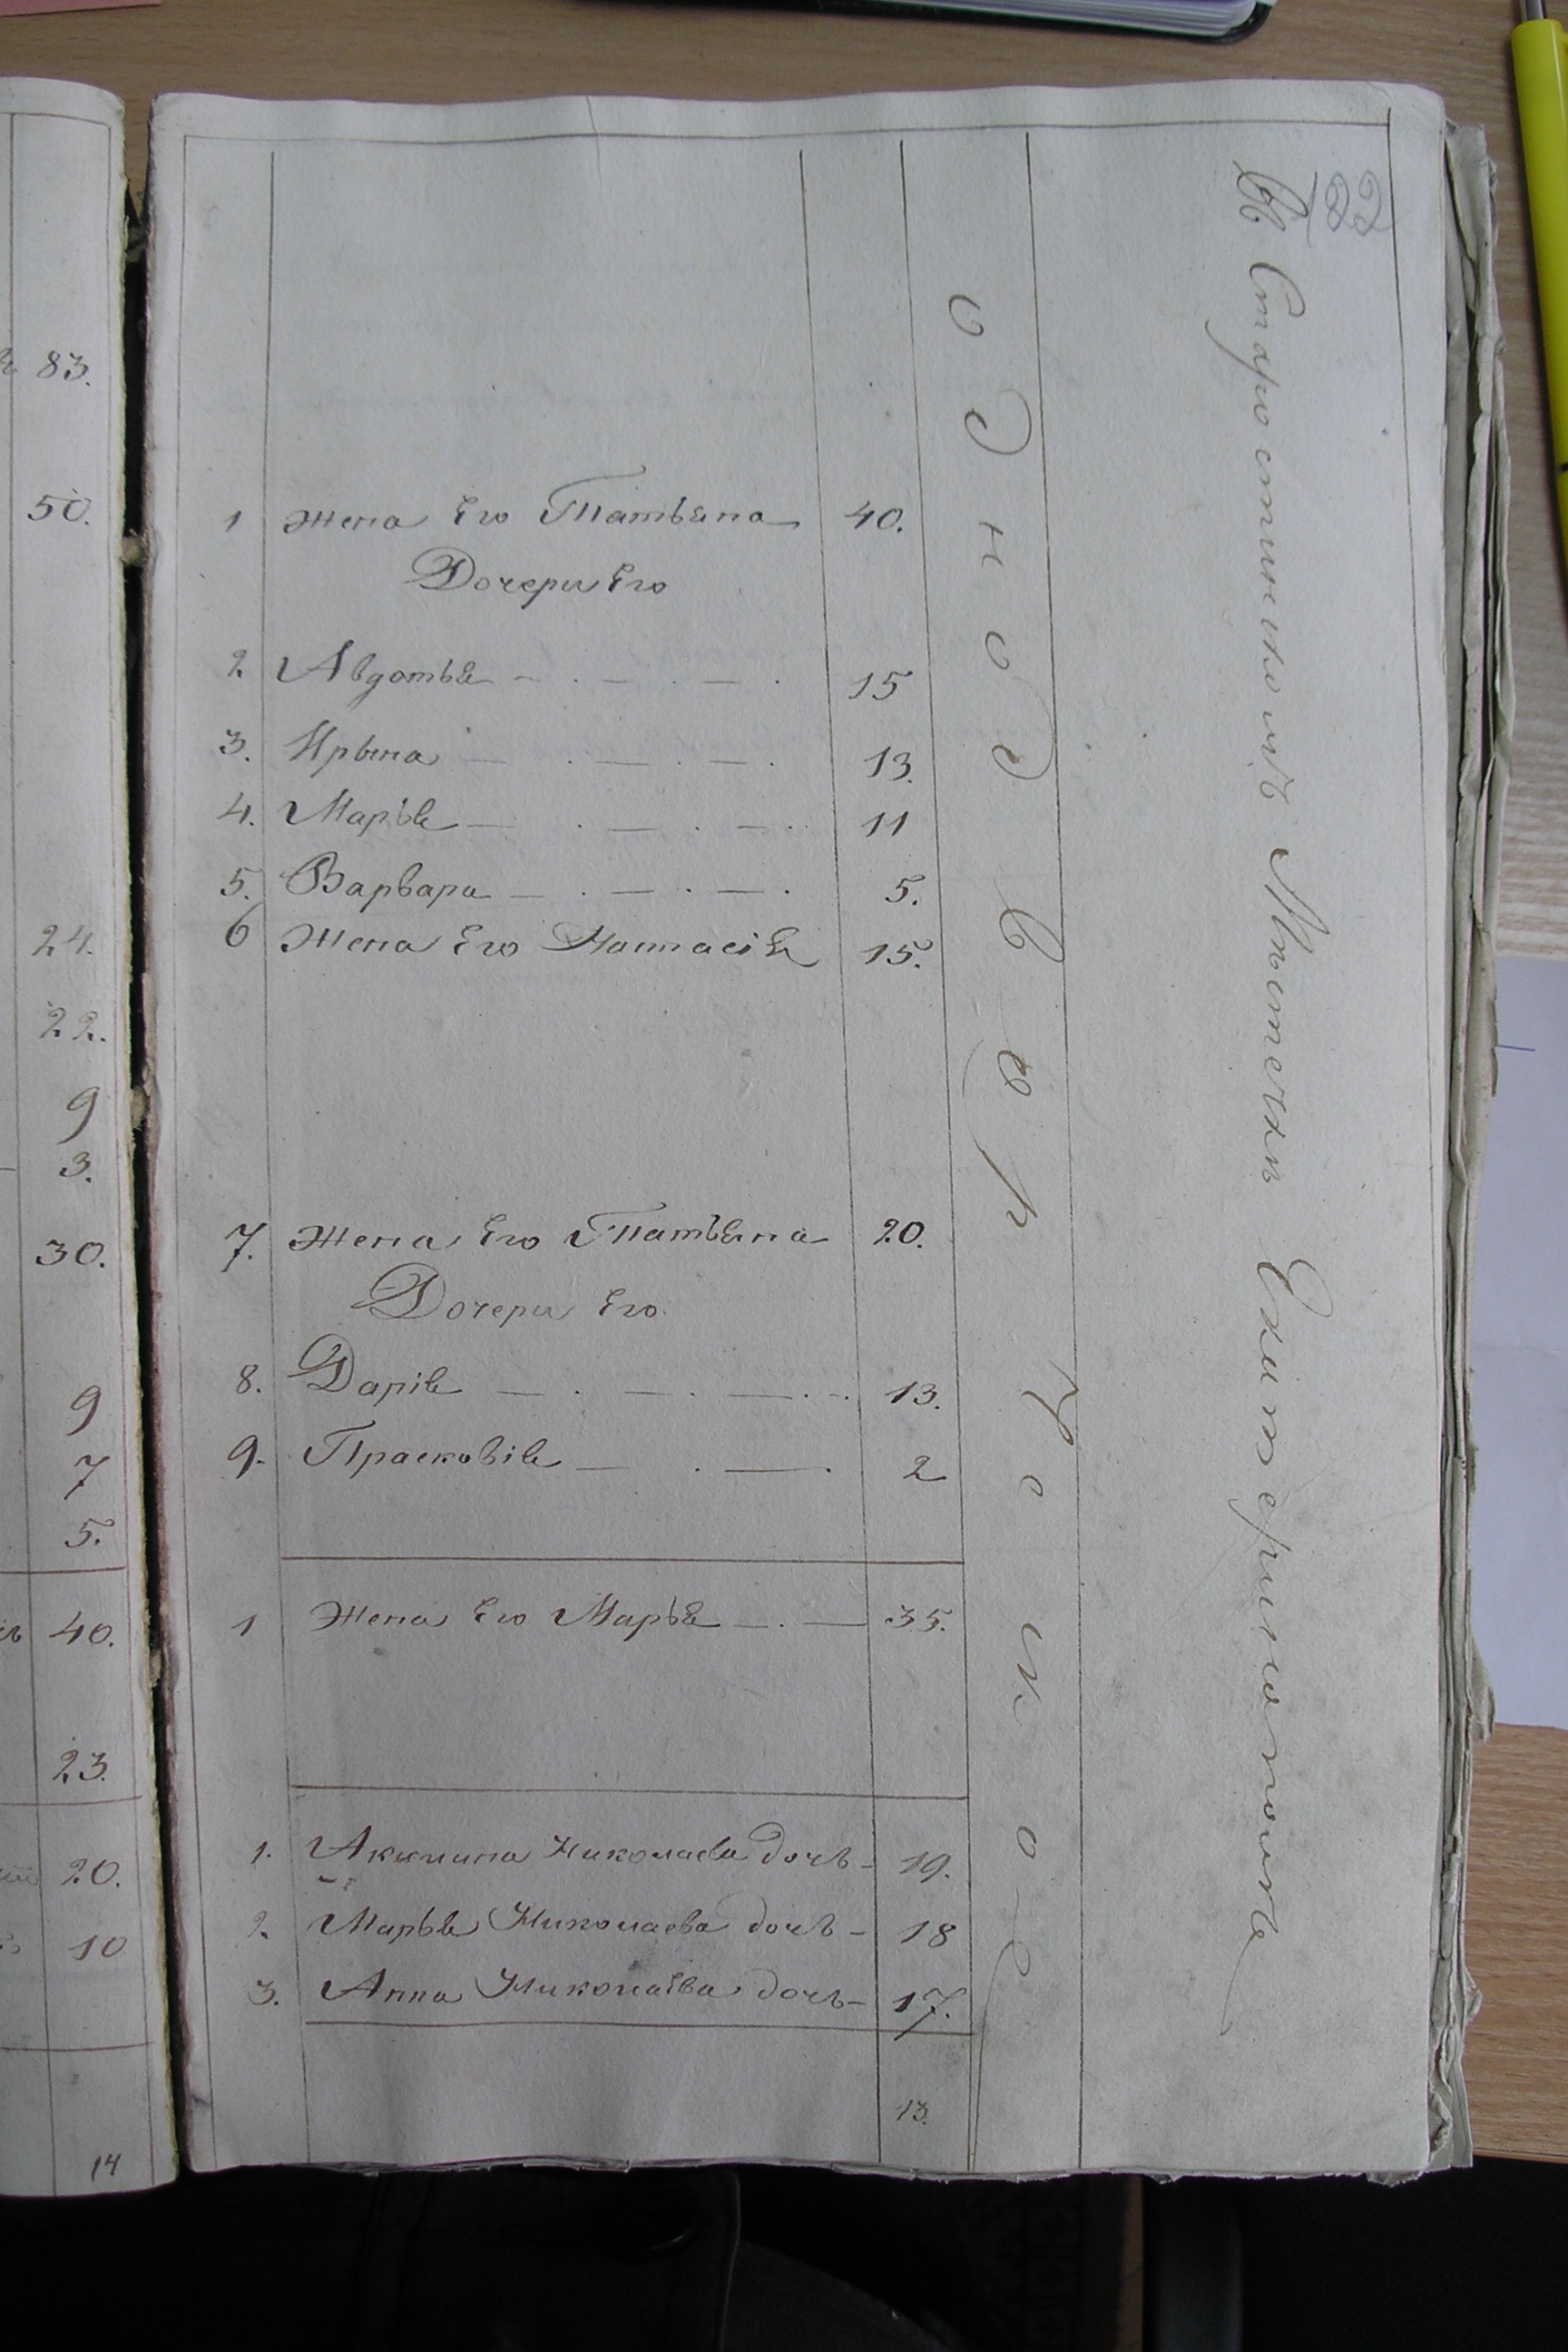 122
83.
50.
24.
22.
9
3.
30.
9
7
5.
40.
23.
20.
10
14
1 Жена Его Татьяна 40.
Дочери Его
2. Авдотья 15
3. Ирына 13.
4. Марья 11
5. Варвара 5.
6 Жена Его Настасія 15.
7. Жена Его Татьяна 20.
Дочери Его
8. Дарія 13.
9. Прасковія 2
1 Жена Его Марья 35.
1. Акилина Николаева дочь 19.
2. Марья Николаева дочь 18
3. Анна Николаева дочь 17.
13.
Однодворческое
Въ Старостинскомъ Местечкѣ